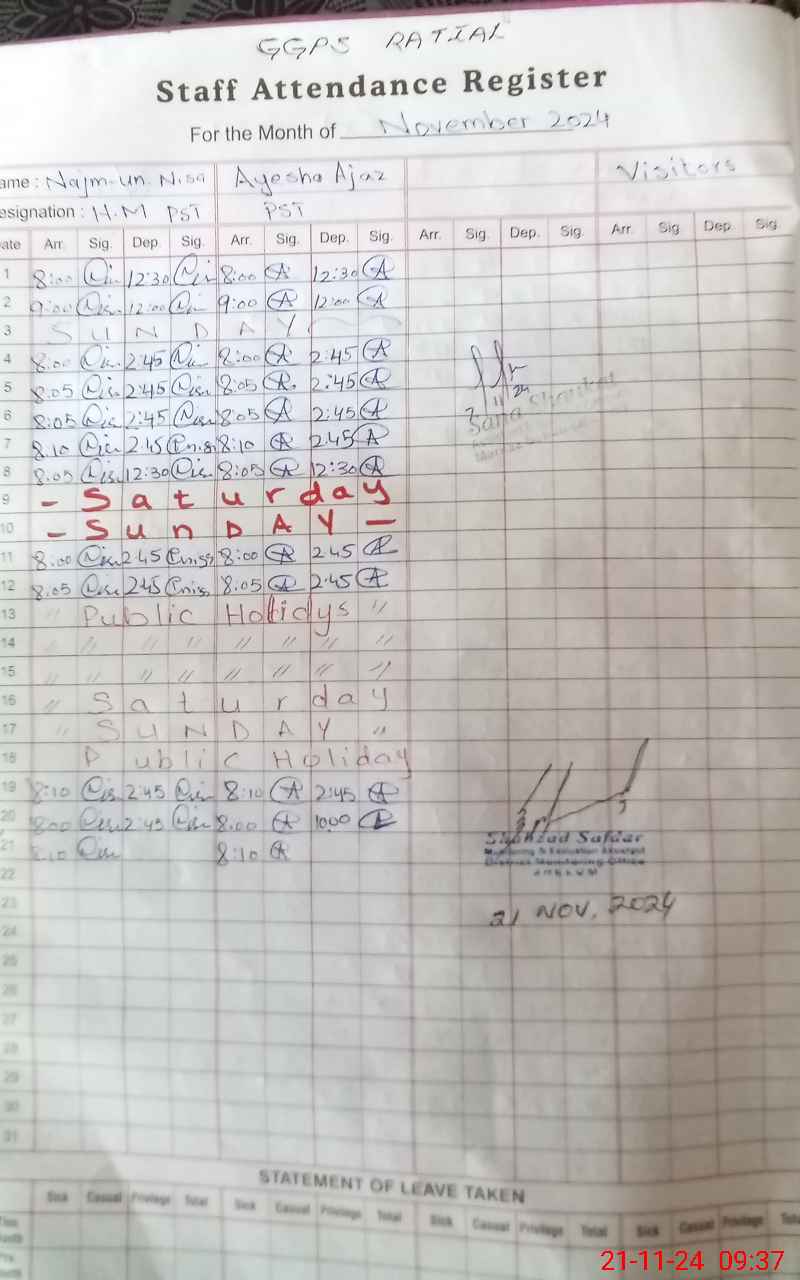 GGPS RATIAL
Staff Attendance Register
For the Month of November 2024
ame : Najm-un. Nisa Ayesha Ajaz Visitors
esignation : H.M PST PST
ate Arr. Sig. Dep. Sig. Arr. Sig. Dep. Sig. Arr. Sig. Dep. Sig. Arr. Sig Dep Sig
1 8:00 12:30 8:00 A 12:30 A
2 9:00 12:00 9:00 A 12:00 A
3 S U N D A Y
4 8:00 2:45 8:00 A 2:45 A
5 8.05 2:45 8:05 A 2:45 A
6 8:05 2:45 8:05 A 2:45 A
7 8.10 2:45 8:10 A 2:45 A
8 8:05 12:30 8:05 A 12:30 A
9 - S a t u r d a y
10 - S u n D A Y -
11 8:00 2:45 8:00 A 2.45 A
12 8.05 2:45 8.05 A 2:45 A
13 " Public Holidys "
14 " " " " " " " "
15 " " " " " " " "
16 " S a t u r d a y
17 " S U N D A Y "
18 P ublic Holiday
19 8:10 2:45 8:10 A 2:45 A
20 8:00 2:45 8.00 A 10:00 A
21 8:10 8:10 A
Shahzad Safdar
District Monitoring Office
22
23
21 NOV, 2024
24
25
26
27
28
29
30
31
STATEMENT OF LEAVE TAKEN
Sick Casual Privilege Total Sick Casual Privilege Total Sick Casual Privilege Total Sick Casual Privilege Tota
21-11-24 09:37